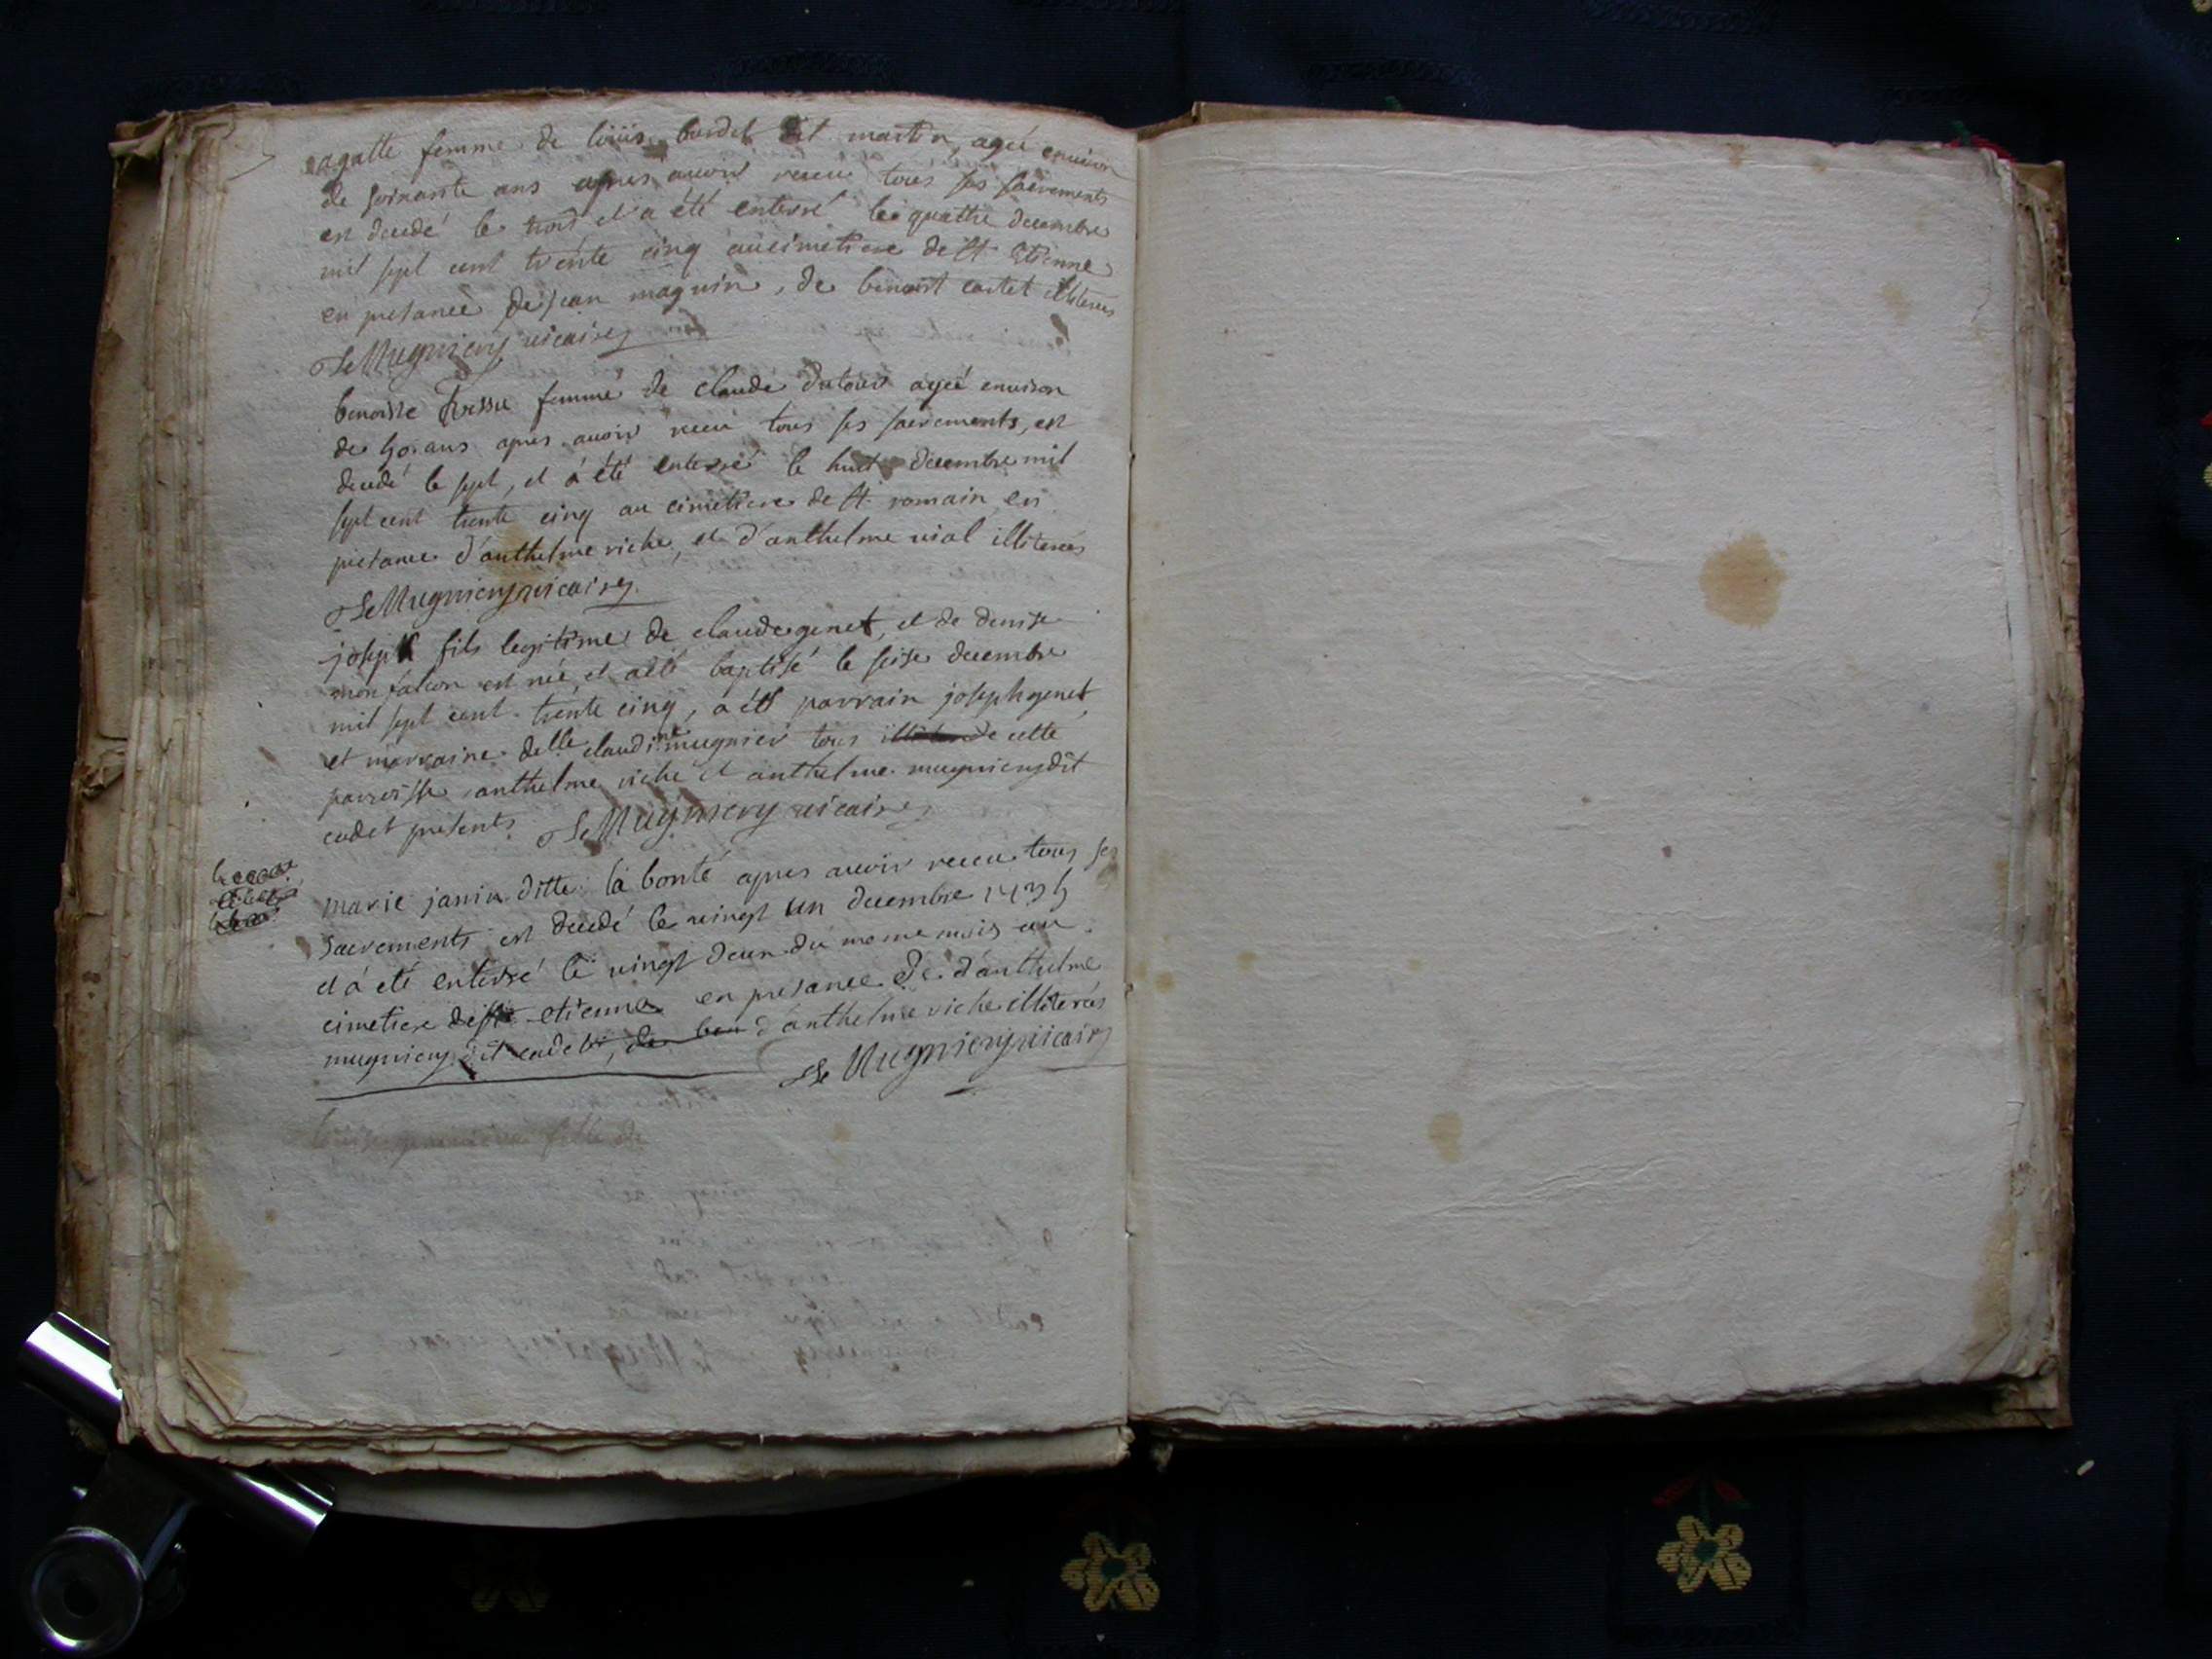 agatte femme de loüis burdet dit martin, agéé environ
de soixante ans apres avoir receu tous ses sacrements
est decedé le trois et a été enterré le quattre decembre
mil sept cent trente cinq au cimetiere de st Etienne
en presance de jean maguin, de benoist cartet illiterés
Mugniery vicaire
benoiste femme de claude dutour agéé environ
de ans apres avoir receu tous ses sacrements, est
decedé le sept, et á été enterré le huit decembre mil
sept cent trente cinq au cimetiere de st romain en
presance d'anthelme riche, et d'anthelme vial illiterés
Mugniery vicaire
joseph fils legitime de claude genet, et de denise
monfalcon est née, et aété baptisé le seise decembre
mil sept cent trente cinq, á été parrain joseph genet,
et marraine delle claudine mugnier tous de cette
parroisse anthelme riche et anthelme mugniery dit
cadet presents Mugniery vicaire
marie janin ditte la bonté apres avoir receu tous ses
sacrements est decedé le vingt un decembre 1735
et á eté enterré le vingt deux du meme mois au
cimetiere de st etienne en presance de d'anthelme
mugniery dit cadet, de ben d'anthelme riche illiterés
Mugniery vicaire
fille de